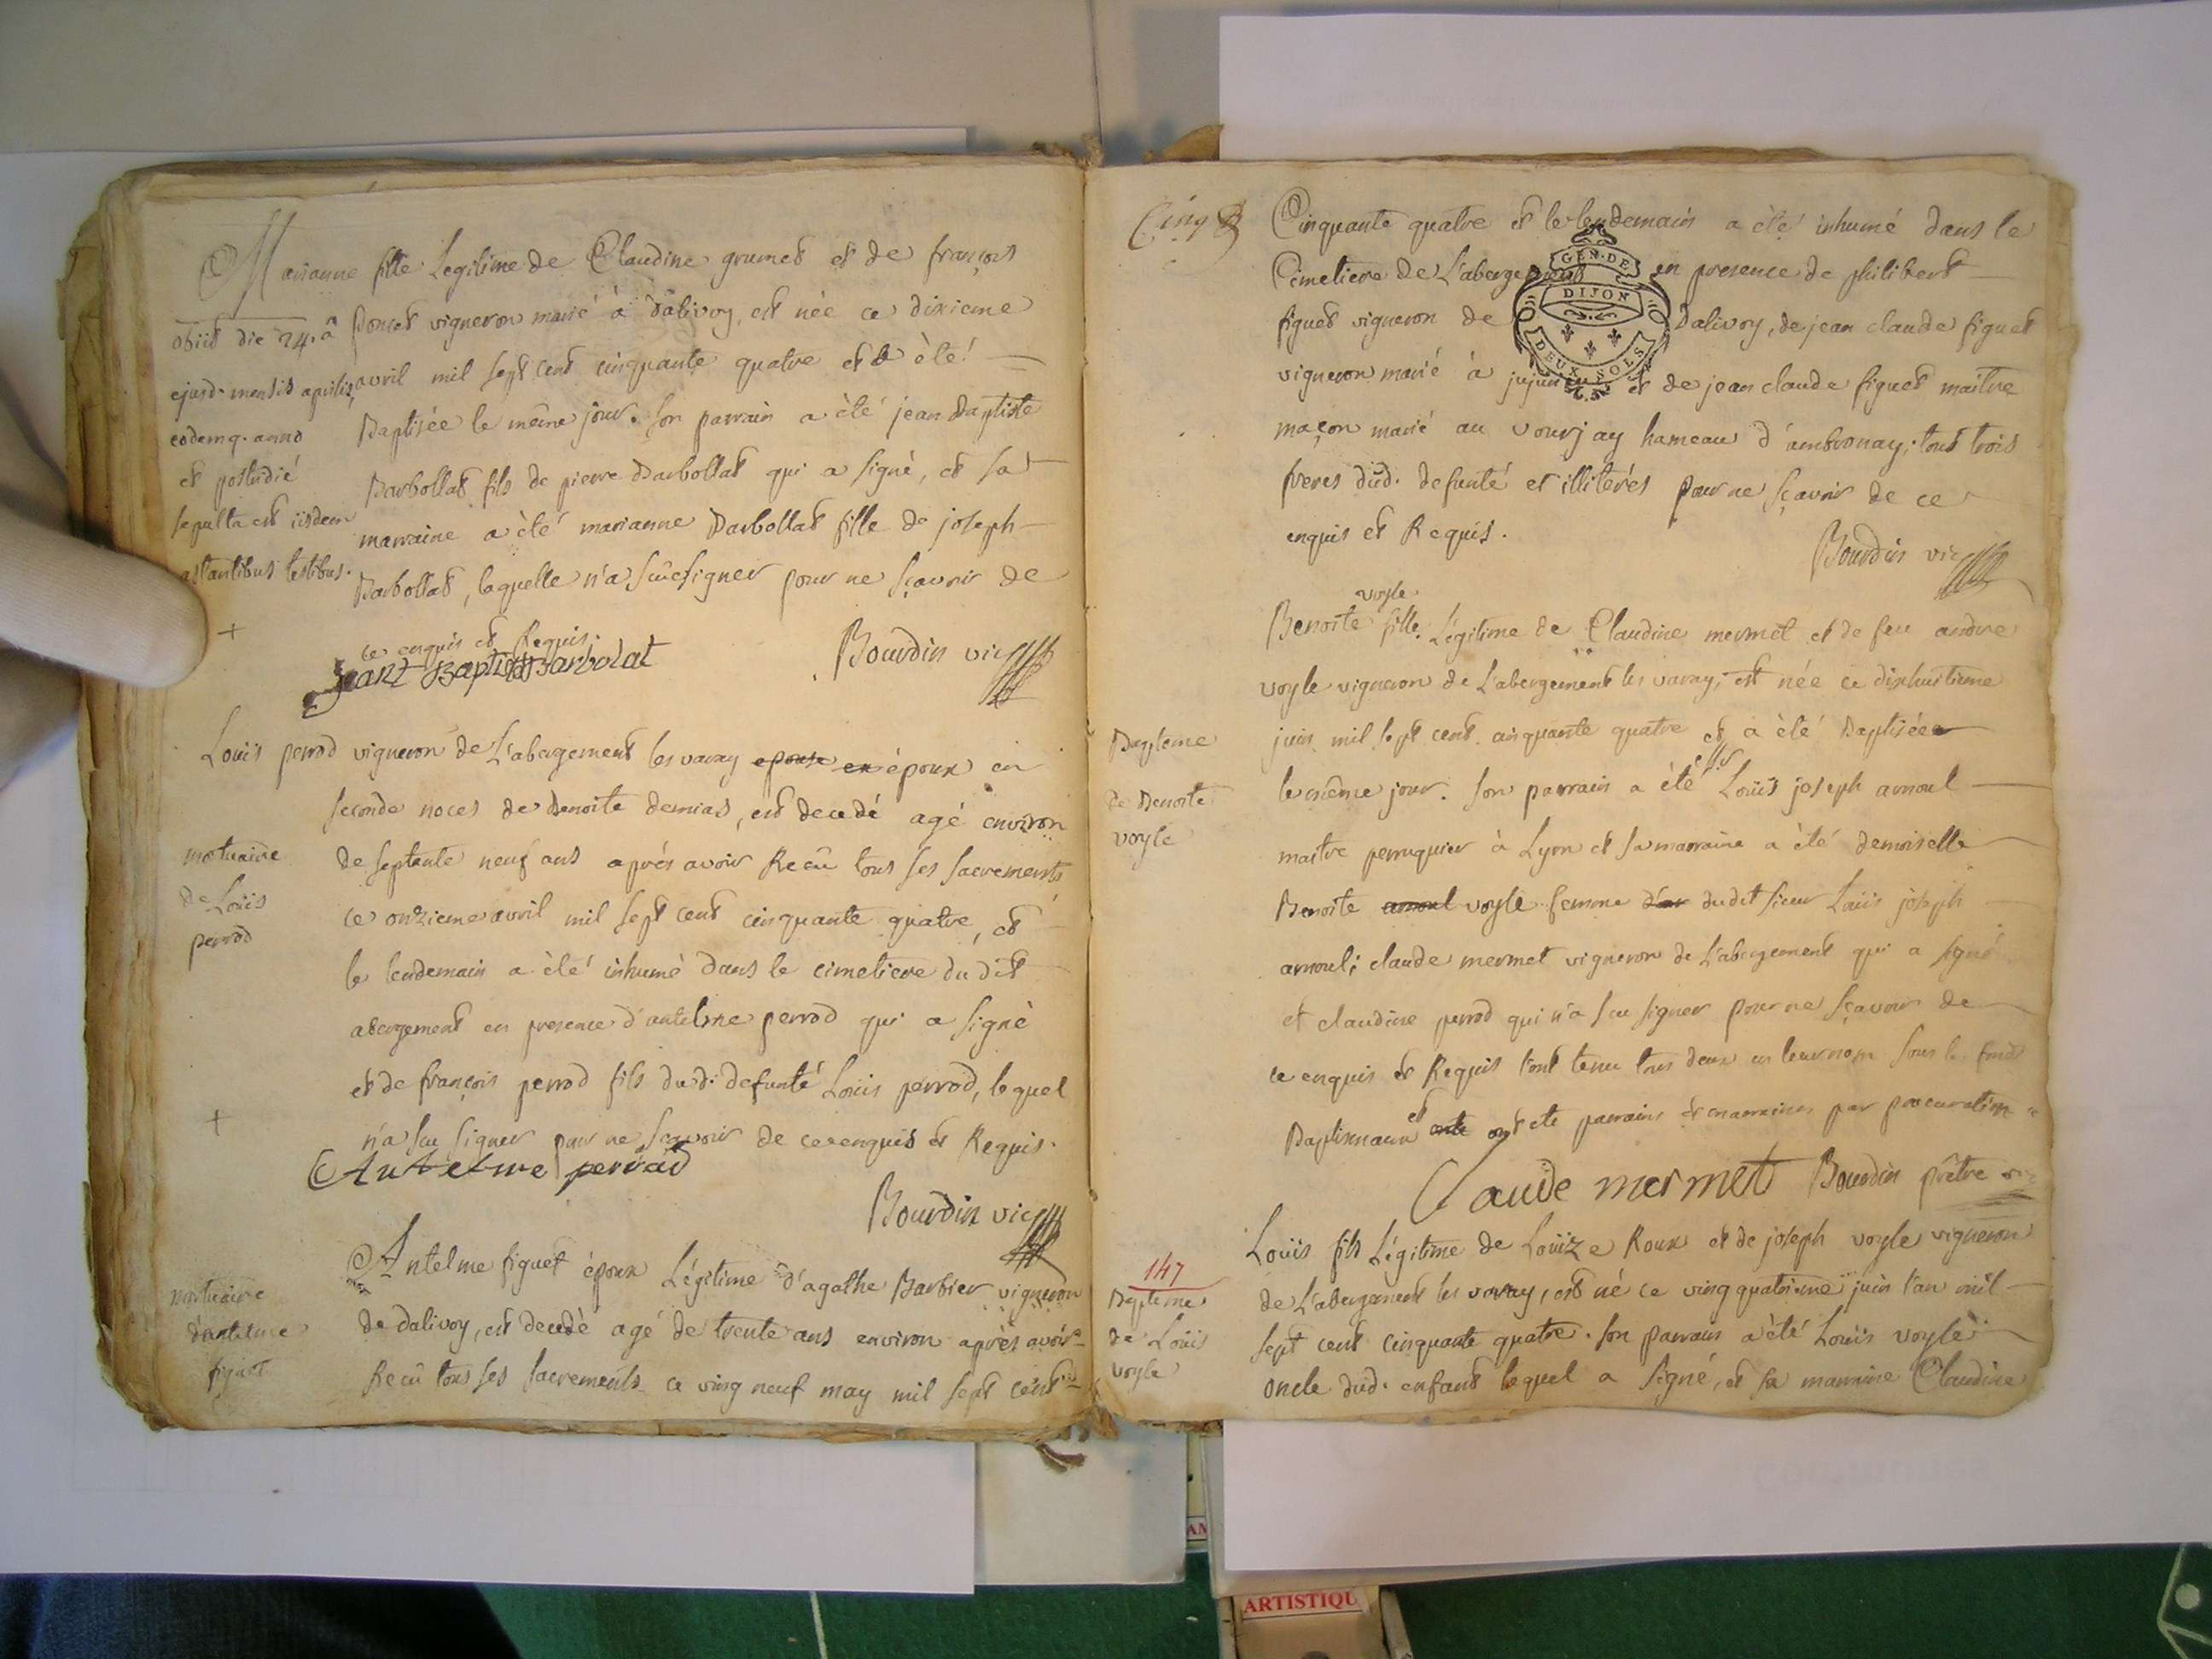 Marianne fille Legitime de Claudine grumet et de françois
poncet vigneron marié à dalivoy, est née ce dixieme
avril mil sept cent cinquante quatre et a été
Baptisée le même jour. son parrain a été jean Baptiste
Barbollat fils de pierre Barbollat qui a signé, et sa
marraine a été marianne Barbollat fille de joseph
Barbollat, laquelle n'a sçu signer pour ne sçavoir de
ce enquis et Requis.
obiit die 24.a
ejusd. mensis aprilis,
eodemq. anno
et postridié
sepulta est iisdem
astantibus testibus.
+
Jeant Baptista Barbolat
Bourdin vic
Louis perrod vigneron de L'abergement les varay epoux en époux en
seconde noces de Benoite demias, est decedé agé environ
de septante neuf ans aprés avoir Recû tous ses sacrements
ce onzieme avril mil sept cent cinquante quatre, et
le lendemain a été inhumé dans le cimetiere du dit
abergement en presence d'antelme perrod qui a signé
et de françois perrod fils dud. defunté Louis perrod, lequel
n'a scu signer pour ne sçavoir de ce enquis et Requis.
mortuaire
de Loüis
perrod
+
Antelme perrad
Bourdin vic
Antelme figuet époux Légitime d'agathe Barbier vigneron
de dalivoy, est decedé agé de trente ans environ aprés avoir
Recû tous ses sacrements ce ving neuf may mil sept cent
mortuaire
d'antelme
figuet
Cinq
Cinquante quatre et le lendemain a été inhumé dans le
Cimetiere de L'abergement en presence de philibert
figuet vigneron de Dalivoy, de jean claude figuet
vigneron marié à jujurieu et de jean claude figuet maitre
maçon marié au vourjay hameau d'ambronay; tous trois
freres dud. defunté et illiterés pour ne sçavoir de ce
enquis et Requis.
GEN. DE
DIJON
DEUX SOLS
Bourdin vic
voyle
Benoite fille Légitime de Claudine mermet et de feu andre
voyle vigneron de L'abergement les varay, est née ce dixhuitieme
juin mil sept cent cinquante quatre et a été Baptisée
le même jour. son parrain a été sr Louis joseph arnoul
maitre perruquier à Lyon et sa marraine a été demoiselle
Benoite arnoul voyle femme dudit sieur Loüis joseph
arnoul; claude mermet vigneron de L'abergement qui a signé
et claudine perrod qui n'a scu signer pour ne sçavoir de
ce enquis et Requis l'ont tenu tous deux en leur nom sous les fonds
Baptismaux et ont ete parrains et marraines par procuration
Baptême
de Benoite
voyle
Claude mermet Bourdin prêtre vic
Louïs fils Légitime de Loüize Roux et de joseph voyle vigneron
de L'abergement les varay, est né ce ving quatrieme juin l'an mil
sept cent cinquante quatre. son parrain a été Louis voyle
oncle dud. enfant lequel a signé, et sa marraine Claudine
147
Baptême
de Loüis
voyle
ARTISTIQU